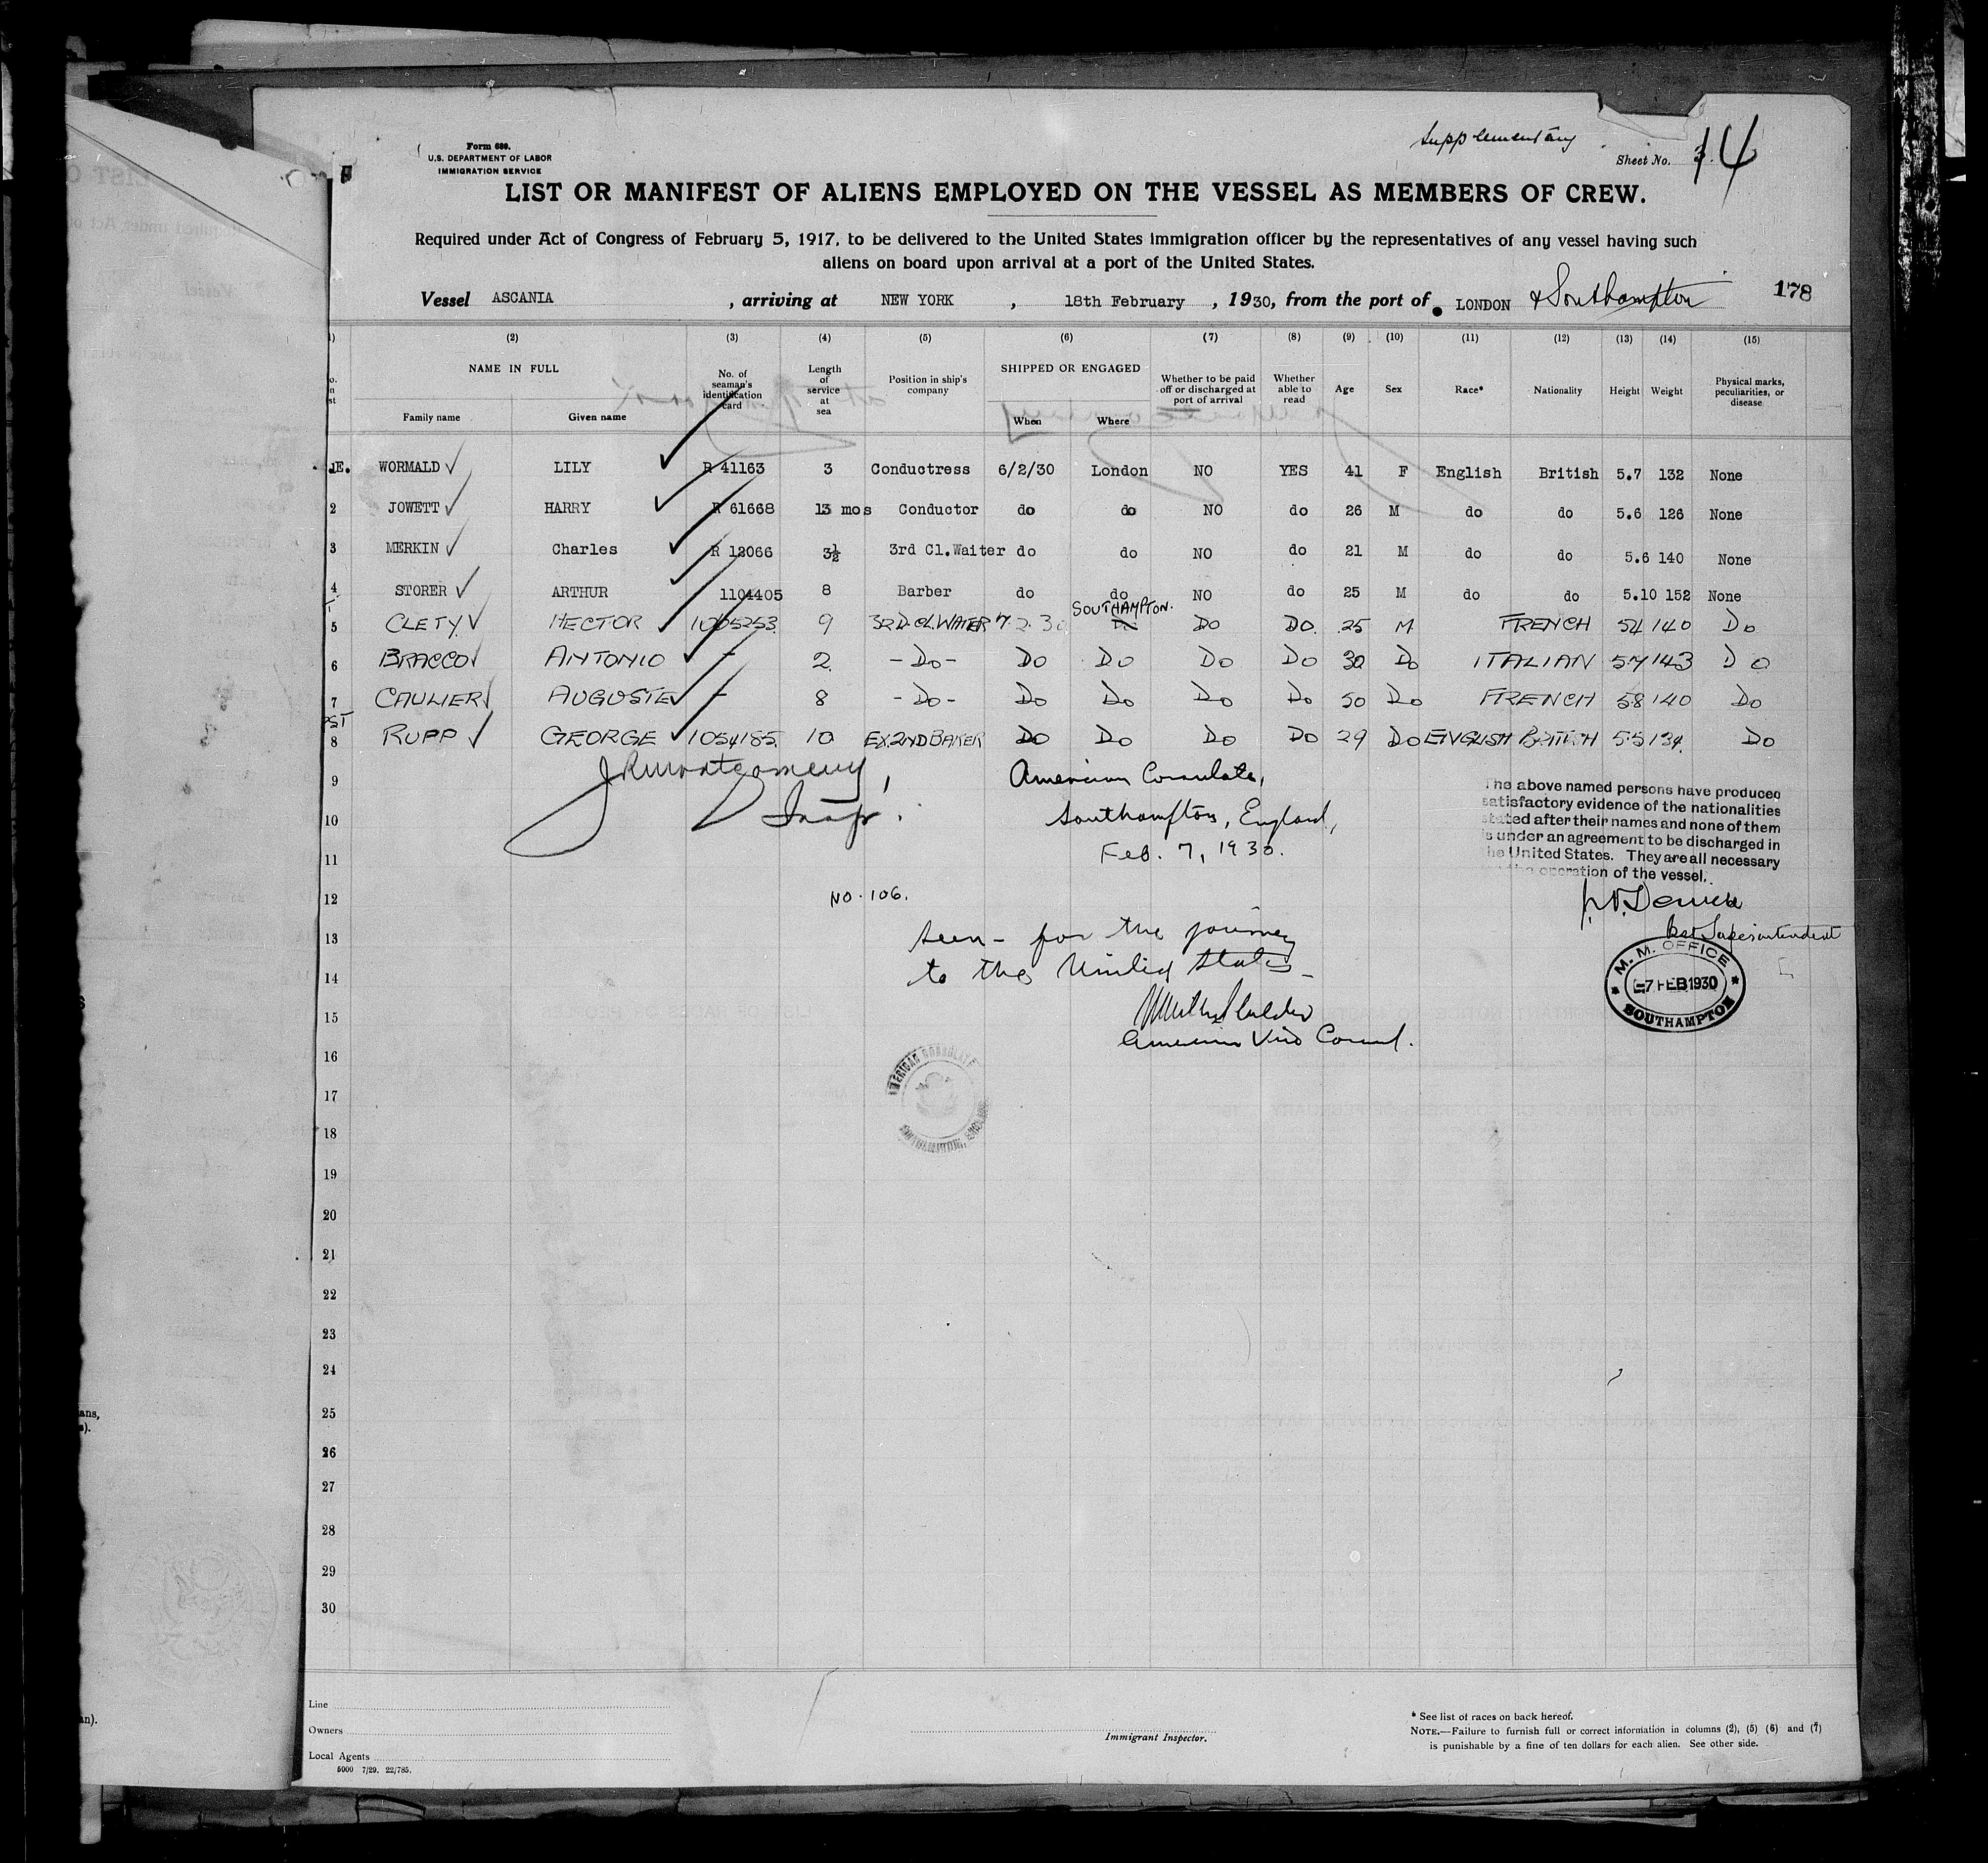 Supplementary
Form 680.
U.S. DEPARTMENT OF LABOR
IMMIGRATION SERVICE
Sheet No. 14
LIST OR MANIFEST OF ALIENS EMPLOYED ON THE VESSEL AS MEMBERS OF CREW.
Required under Act of Congress of February 5, 1917, to be delivered to the United States immigration officer by the representatives of any vessel having such
aliens on board upon arrival at a port of the United States.
Vessel ASCANIA, arriving at NEW YORK, 18th February, 1930, from the port of LONDON & Southampton 178
(2) (3) (4) (5) (6) (7) (8) (9) (10) (11) (12) (13) (14) (15)
NAME IN FULL Family name Given name
No. of seaman's identification card
Length of service at sea
Position in ship's company
SHIPPED OR ENGAGED When Where
Whether to be paid off or discharged at port of arrival
Whether able to read
Age Sex Race* Nationality Height Weight
Physical marks, peculiarities, or disease
1E. WORMALD LILY R 41163 3 Conductress 6/2/30 London NO YES 41 F English British 5.7 132 None
2 JOWETT HARRY R 61668 13 mos Conductor do do NO do 26 M do do 5.6 126 None
3 MERKIN Charles R 12066 3½ 3rd Cl.Waiter do do NO do 21 M do do 5.6 140 None
4 STORER ARTHUR 1104405 8 Barber do do NO do 25 M do do 5.10 152 None
5 CLETY HECTOR 1005253 9 3RD.CL.WAITER 7.2.30 SOUTHAMPTON. DO DO. 25 M FRENCH 54 140 Do
6 BRACCO ANTONIO - 2 -Do- Do Do Do Do 30 Do ITALIAN 57 143 Do
7 CAULIER AUGUSTE - 8 -Do- Do Do Do Do 50 Do FRENCH 58 140 Do
8 RUPP GEORGE 1054185 10 EX.2ND BAKER Do Do Do Do 29 Do ENGLISH BRITISH 55 134. Do
9
10
11
12
13
14
15
16
17
18
19
20
21
22
23
24
25
26
27
28
29
30
JRMontgomery,
Insp.
American Consulate,
Southampton, England,
Feb. 7, 1930.
NO. 106.
Seen - for the journey
to the United States -
American Vice Consul.
The above named persons have produced
satisfactory evidence of the nationalities
stated after their names and none of them
is under an agreement to be discharged in
the United States. They are all necessary
the operation of the vessel.
Superintendent
M. M. OFFICE
7 FEB 1930
SOUTHAMPTON
AMERICAN CONSULATE
SOUTHAMPTON, ENGLAND
Line
Owners
Local Agents
5000 7/29. 22/785.
Immigrant Inspector.
* See list of races on back hereof.
NOTE.—Failure to furnish full or correct information in columns (2), (5) (6) and (7)
is punishable by a fine of ten dollars for each alien. See other side.